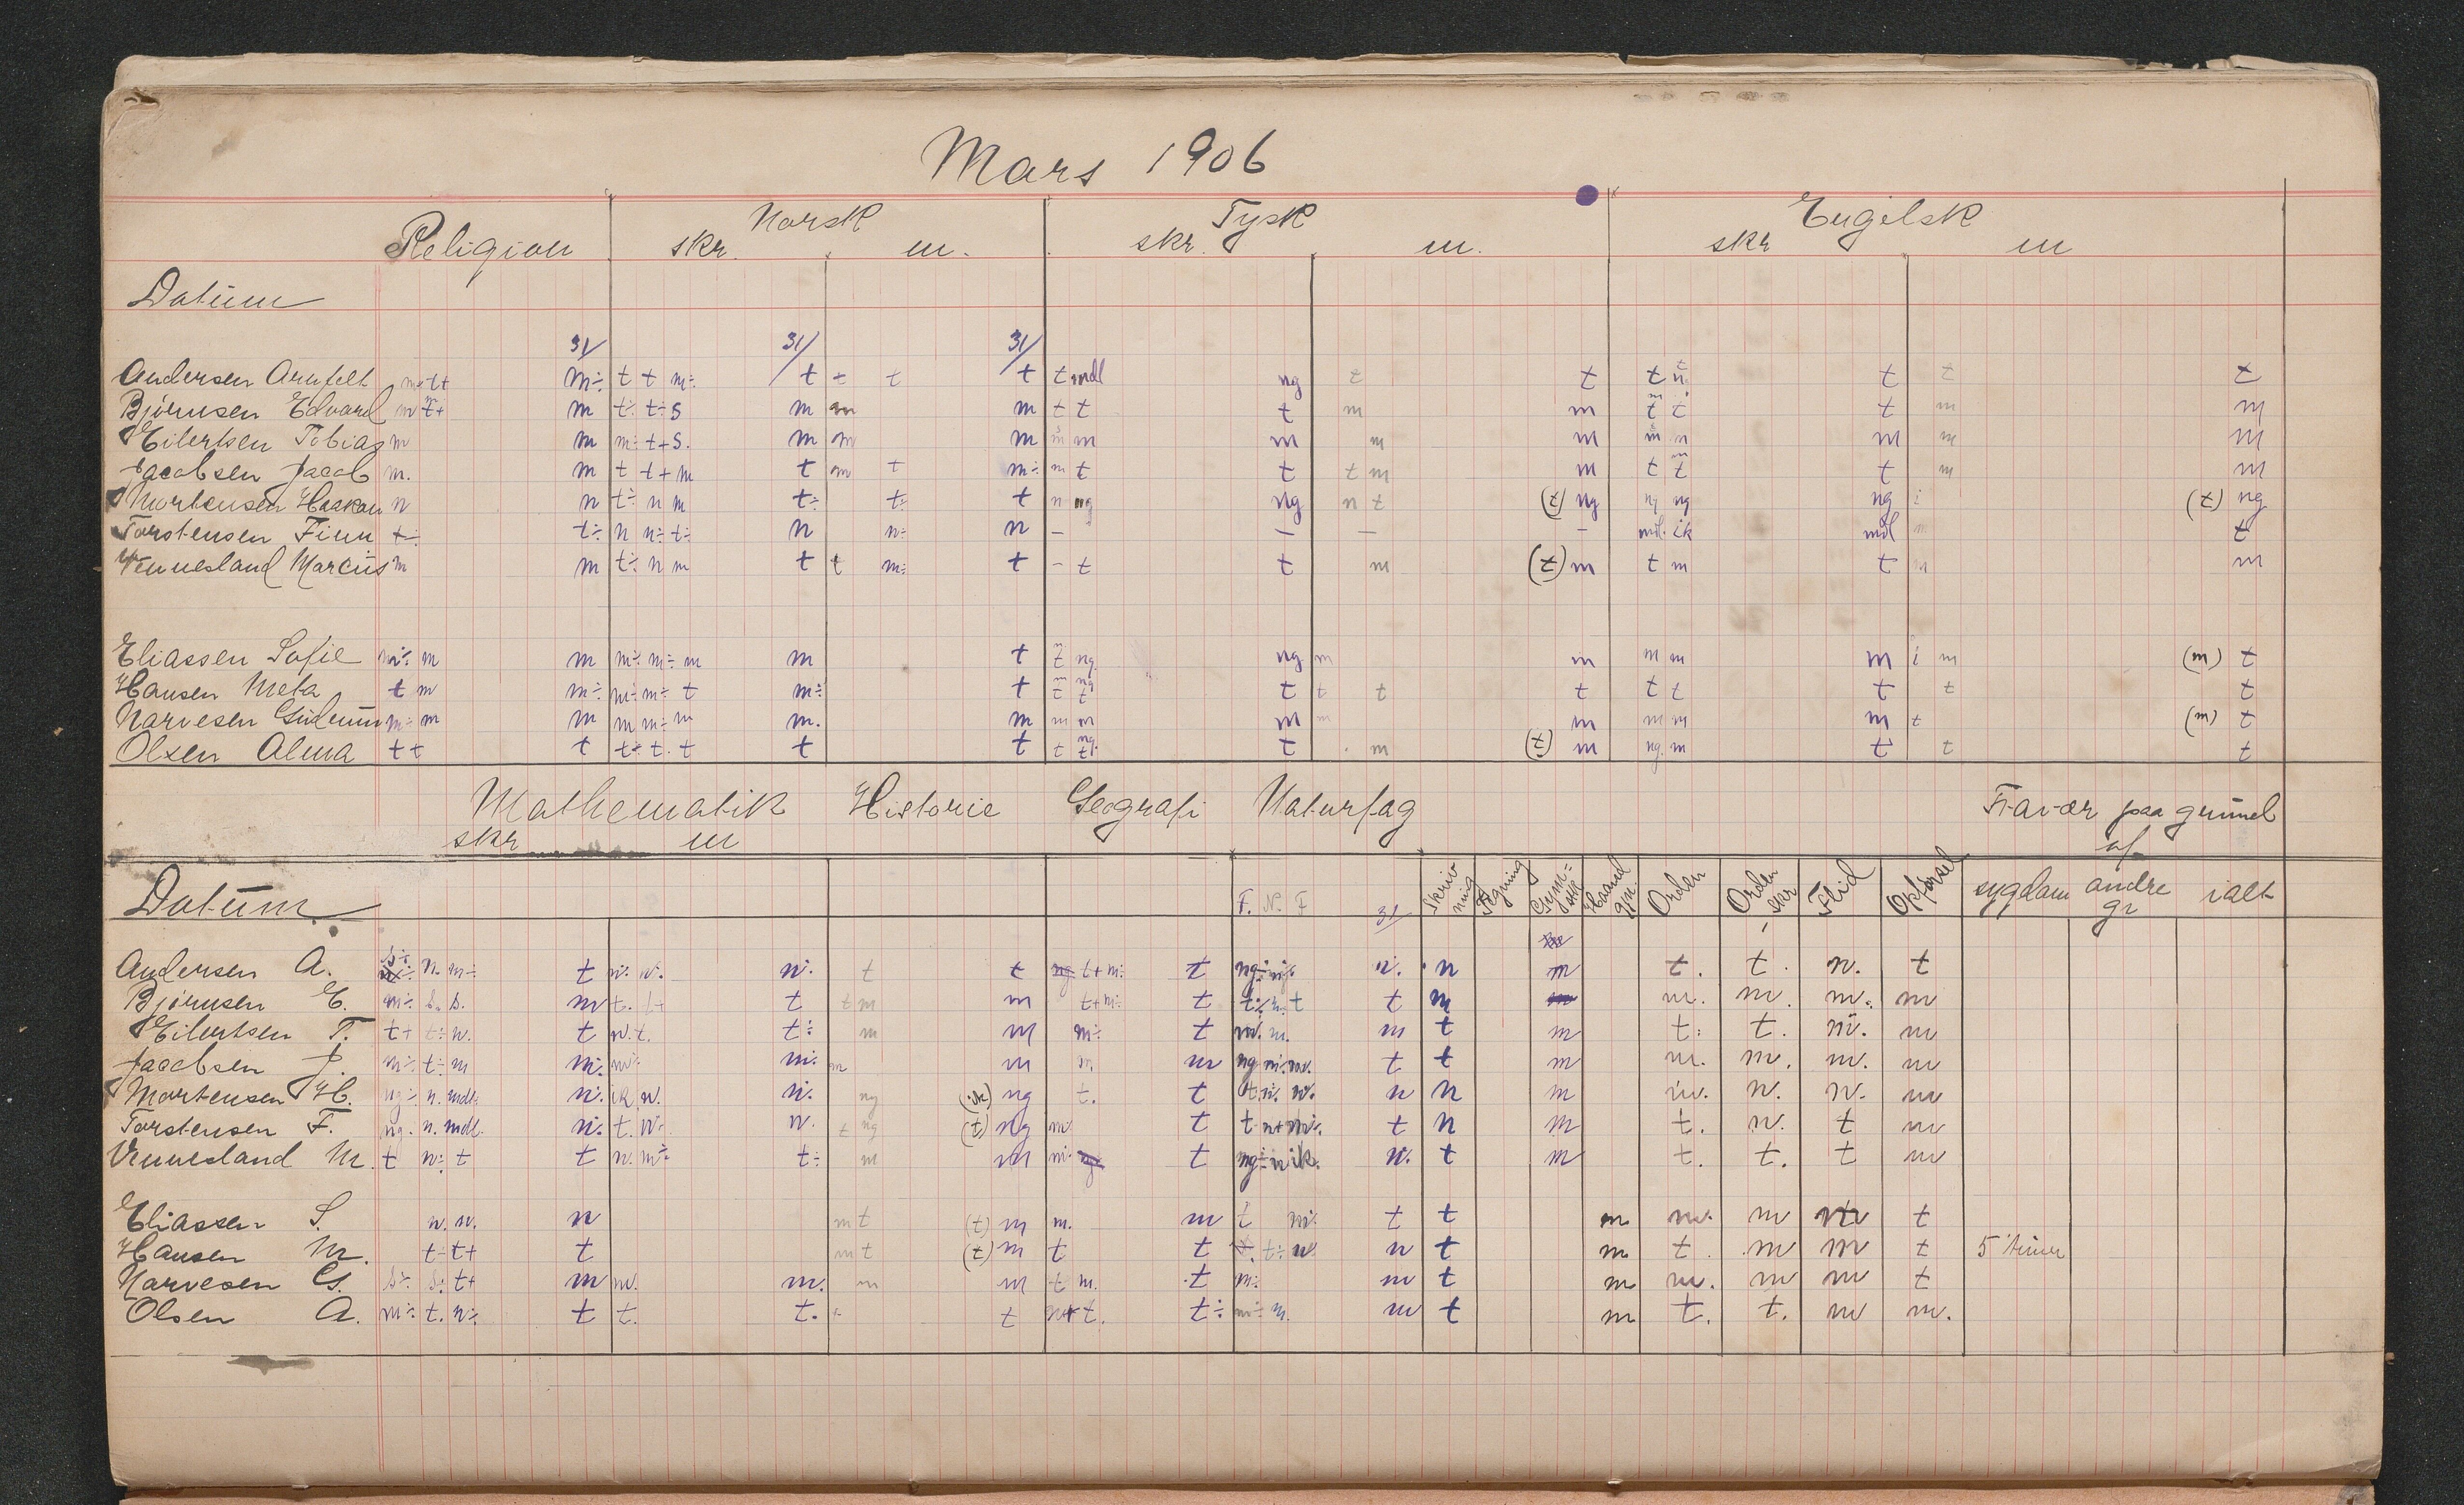 Mars 1906
Religion Norsk Tysk Engelsk
skr. m. skr. m. skr m
Datum
31/ 31/ 31/
Andersen Arnfelt m÷ t t m÷ t t t t mdl ng t t t t t t
Bjørnsen Edvard m t÷ t÷s m m m t t t m m t t t m m
Eilertsen Tobias m m m÷ t+s. m m m m m m m m m m
Jacobsen Jacob m. m t t+m t m t m÷ m t t t m m t t t m m
Mortensen Haakon n n t÷ n m t÷ t÷ t n ng ng n t (t) ng ng ng ng i (t) ng
Torstensen Finn t÷ t÷ n n÷ t÷ n n÷ n – – – – mdl. ik mdl t
Vennesland Marcus m m t÷ n m t t m÷ t – t t m (t) m t m t m m
Eliassen Sofie m÷ m m m÷ m÷ m m t t ng. ng m m m m m i m (m) t
Hansen Meta t m m÷ m÷ m÷ t m÷ t t t t t t t t t t t t
Narvesen Gudrun m÷ m m m m÷ m m. m m m m m m m m m t (m) t
Olsen Alma t t t t÷ t. t t t t t. t m (t) m ng. m t t t
Mathematik Historie Geografi Naturfag Fravær paa grund
skr m af
Datum F. N. F 31/ Skriv-ning Tegning Gym-nastik Haand gjn. Orden Orden skr Flid Opførsel sygdom andre gr ialt
Andersen A. n. m÷ t t t t+m÷ t n. n m t. t. n. t
Bjørnsen E. m÷ s. s. m t. t t m m t+m÷ t t m m. m. m. m
Eilertsen T. t+ t÷ n. t n.t. t÷ m m m÷ t m t m t. t. m. m
Jacobsen J. m÷ t÷ m m. m÷ m m m m t t m m. m. m. m
Mortensen H. ng÷ n. mdl. n. ik n. n. ng (ik) ng t. t n n m m. n. n. m
Torstensen F. ng. n. mdl. n. t. n. n. t ng (t) ng m t t n m t. n. t m
Vennesland M. t n÷ t t n. m÷ t÷ m m t n. t m t. t. t m
Eliassen S. n. n. n m t (t) m m. m t m. t t m m. m m t
Hansen M. t÷t+ t m t (t) m t t t÷ n t m t. m m t 5 timer
Narvesen G. s÷ s÷ t+ m m. m. m m t m. t m÷ m t m m. m m t
Olsen A. m÷ t. n÷ t t. t. t t. t÷ m÷ m. m t m t. t. m m.